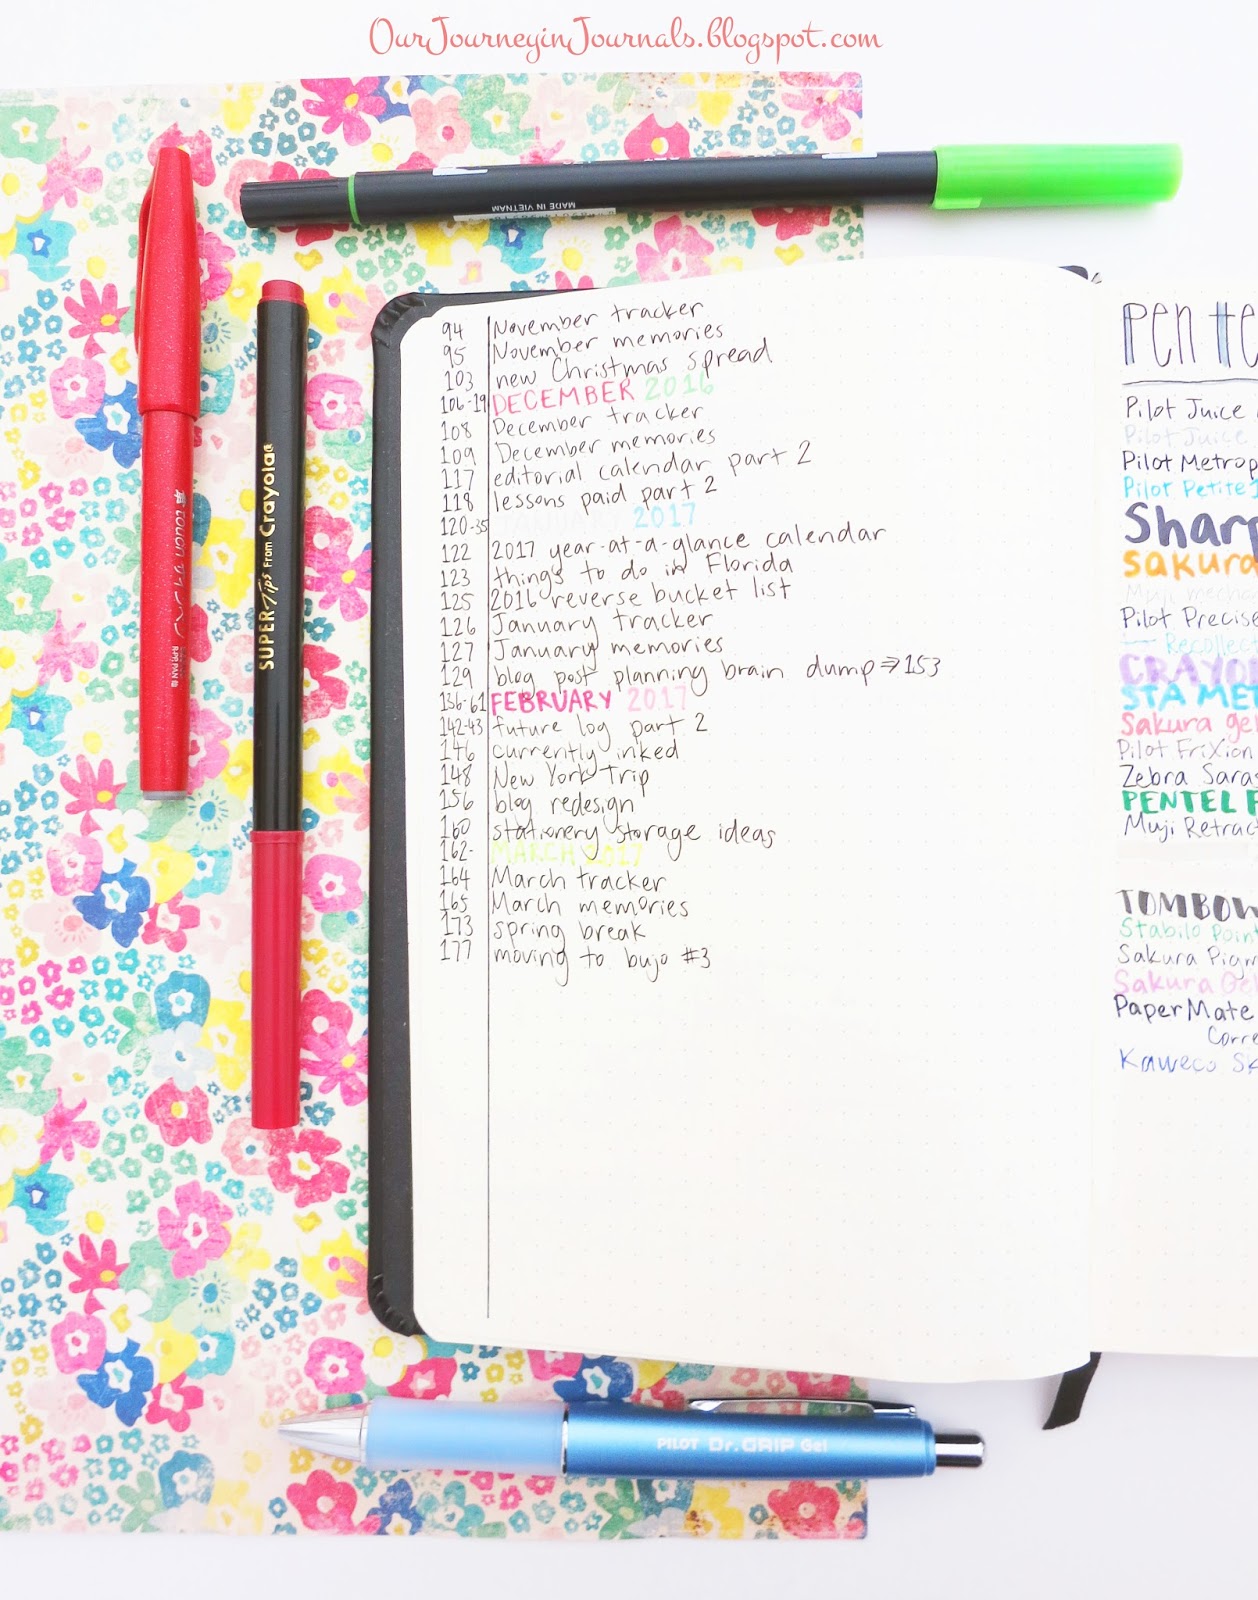 OurJourneyinJournals.blogspot.com
MADE IN VIETNAM
touch サインペン
JAPAN
SUPER Tips from Crayola
94 November tracker
95 November memories
103 new Christmas spread
106-19 DECEMBER 2016
108 December tracker
109 December memories
117 editorial calendar part 2
118 lessons paid part 2
120-35 JANUARY 2017
122 2017 year-at-a-glance calendar
123 things to do in Florida
125 2016 reverse bucket list
126 January tracker
127 January memories
129 blog post planning brain dump ⇒ 153
136-61 FEBRUARY 2017
142-43 future log part 2
146 currently inked
148 New York Trip
156 blog redesign
160 stationery storage ideas
162- MARCH 2017
164 March tracker
165 March memories
173 spring break
177 moving to bujo #3
Pen
Pilot Juice
Pilot Juice
Pilot Metrop
Pilot Petite
Sharp
Sakura
Muji mech
Pilot Precise
Recollect
CRAYO
STAMP
Sakura gel
Pilot FriXion
Zebra Saras
PENTEL F
Muji Retract
TOMBOW
Stabilo Point
Sakura Pigm
Sakura Gel
PaperMate
Corre
Kaweco Sk
PILOT Dr.GRIP Gel